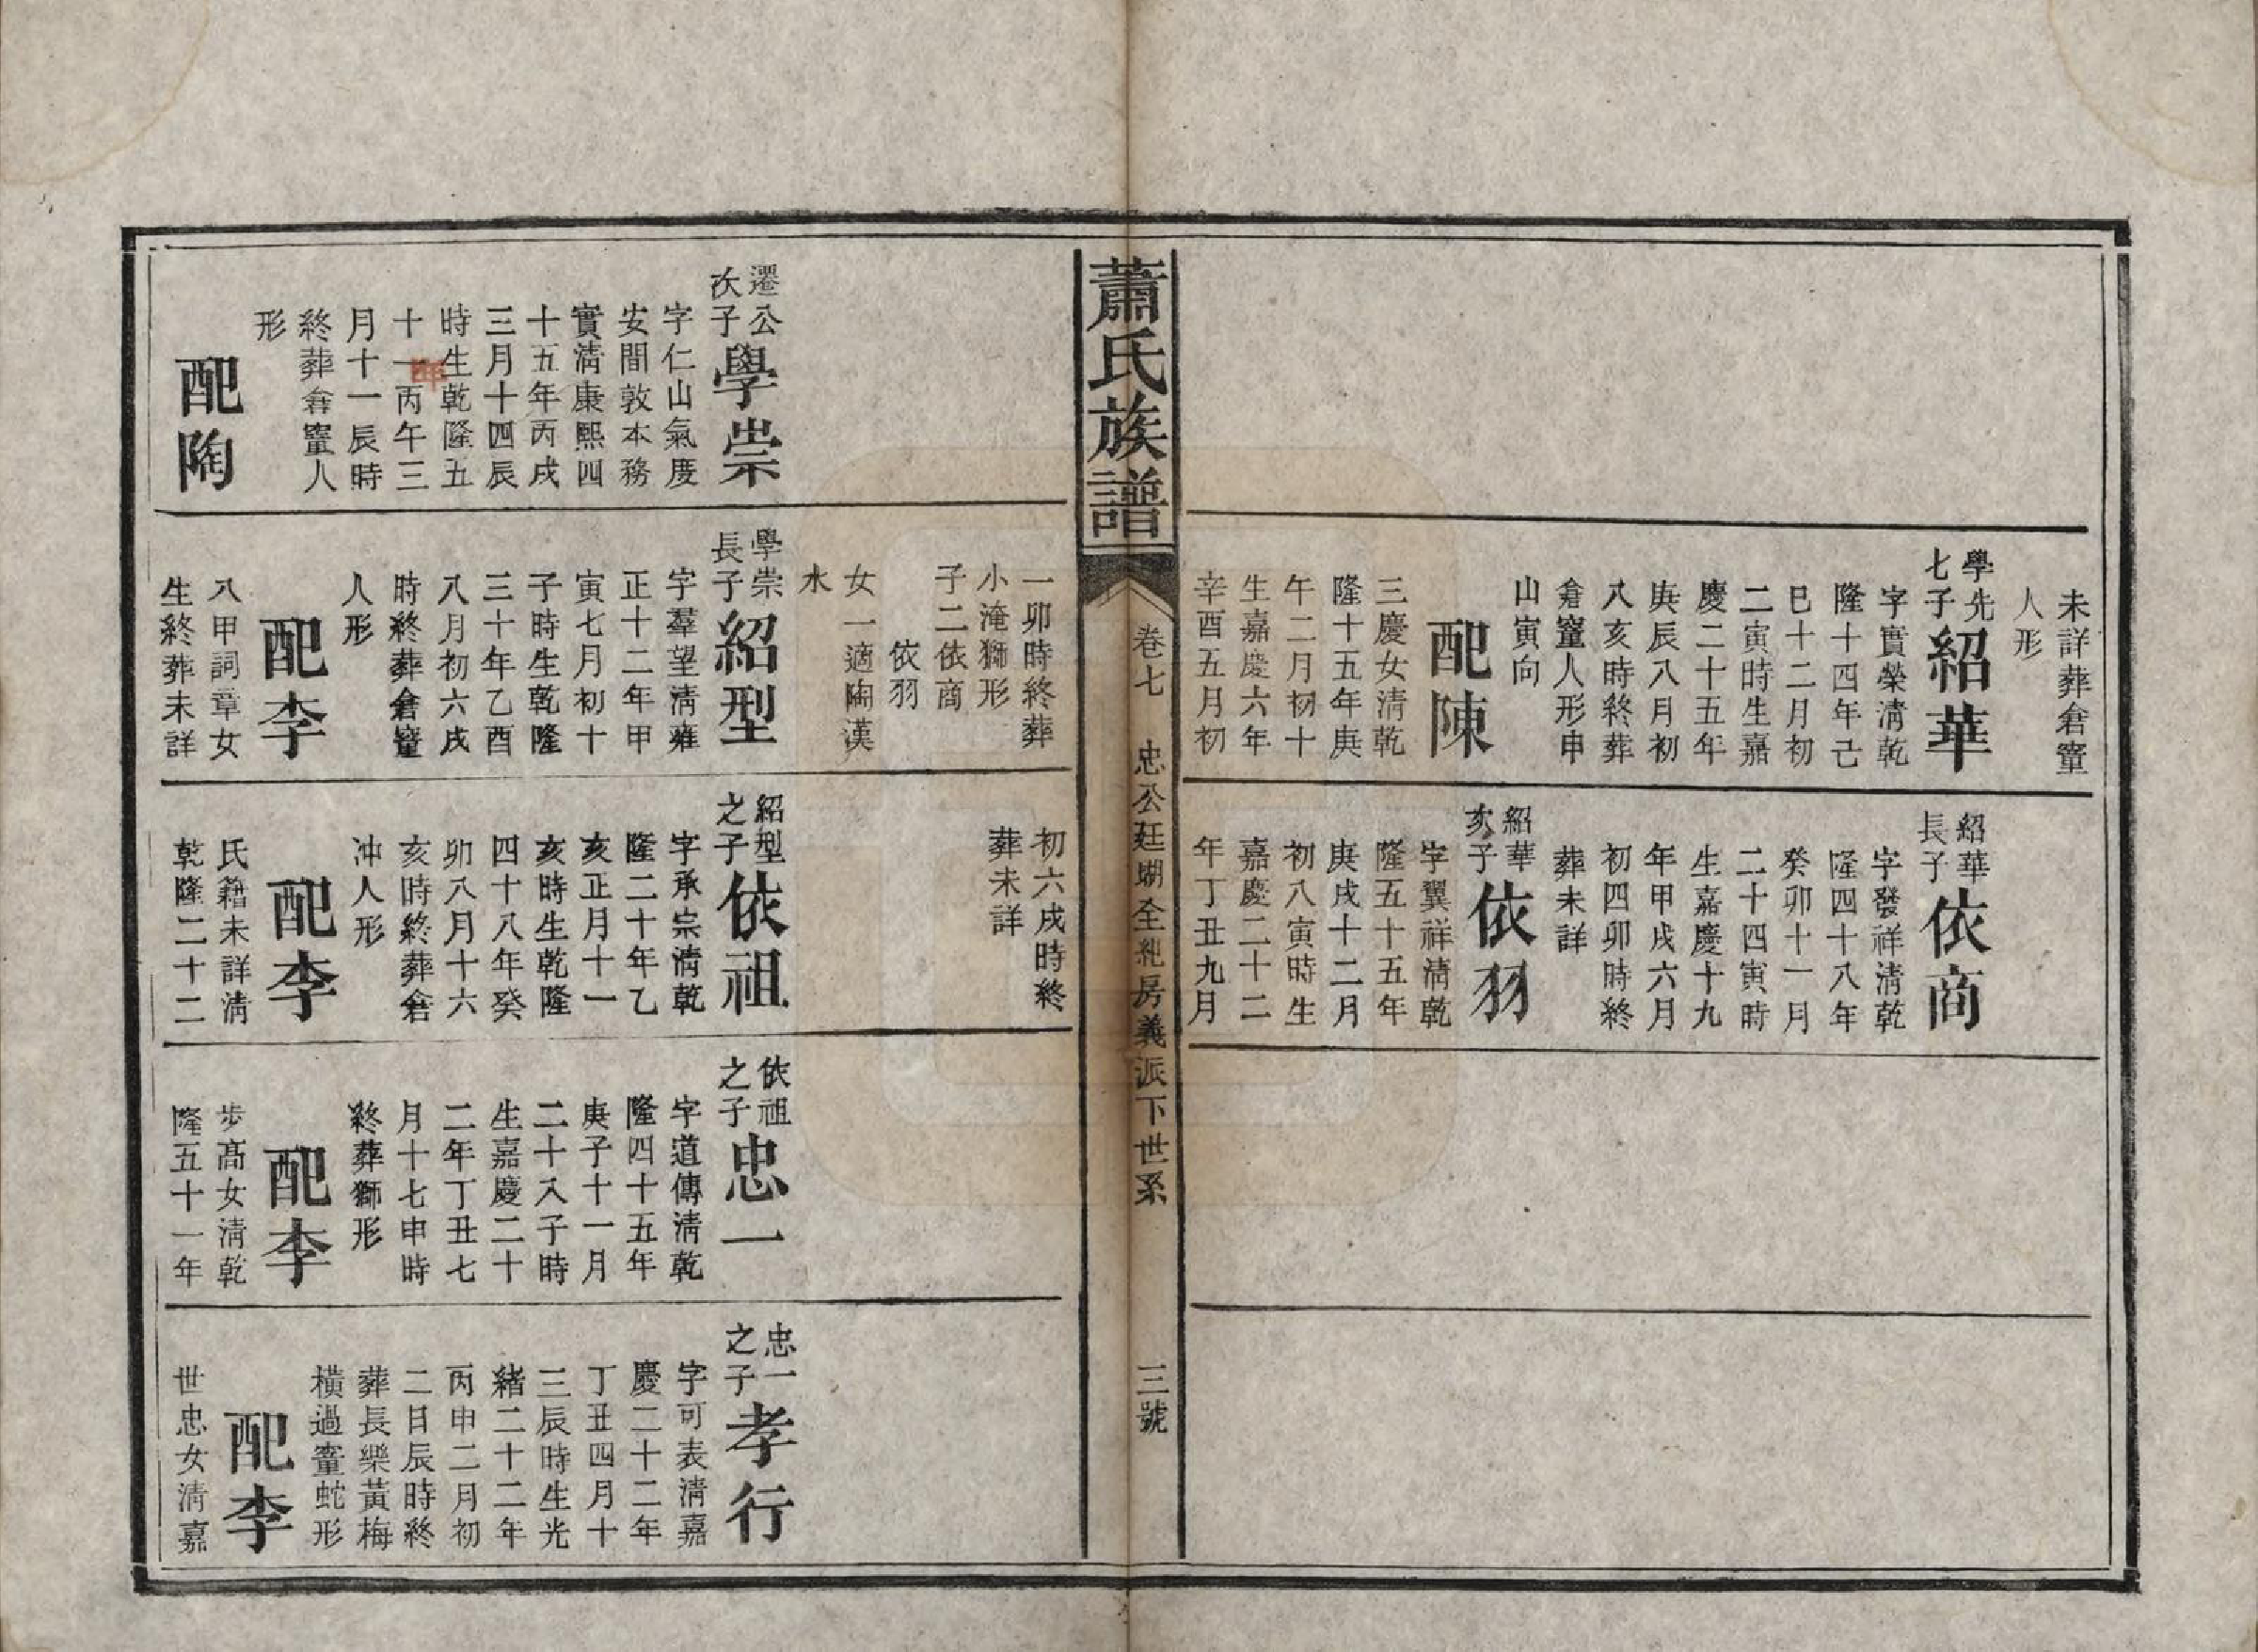 未詳葬倉窰
人形
學先
七子
紹華
字實榮清乾
隆十四年己
巳十二月初
二寅時生嘉
慶二十五年
庚辰八月初
八亥時終葬
倉窰人形申
山寅向
配陳
三慶女清乾
隆十五年庚
午二月初十
生嘉慶六年
辛酉五月初
紹華
長子
依商
字發祥清乾
隆四十八年
癸卯十一月
二十四寅時
生嘉慶十九
年甲戌六月
初四卯時終
葬未詳
紹華
次子
依羽
字翼祥清乾
隆五十五年
庚戌十二月
初八寅時生
嘉慶二十二
年丁丑九月
蕭氏族譜
卷七
忠公廷瑚全紀房義派下世系
三號
遷公
次子
學崇
字仁山氣度
安間敦本務
實清康熙四
十五年丙戌
三月十四辰
時生乾隆五
十一丙午三
年
月十一辰時
終葬倉窰人
形
配陶
一卯時終葬
小淹獅形
子二依商
依羽
女一適陶漢
水
學崇
長子
紹型
字羣望清雍
正十二年甲
寅七月初十
子時生乾隆
三十年乙酉
八月初六戌
時終葬倉窰
人形
配李
八甲詞章女
生終葬未詳
初六戌時終
葬未詳
紹型
之子
依祖
字承宗清乾
隆二十年乙
亥正月十一
亥時生乾隆
四十八年癸
卯八月十六
亥時終葬倉
冲人形
配李
氏籍未詳清
乾隆二十二
依祖
之子
忠一
字道傳清乾
隆四十五年
庚子十一月
二十八子時
生嘉慶二十
二年丁丑七
月十七申時
終葬獅形
配李
步高女清乾
隆五十一年
忠一
之子
孝行
字可表清嘉
慶二十二年
丁丑四月十
三辰時生光
緒二十二年
丙申二月初
二日辰時終
葬長樂黃梅
橫過窰蛇形
配李
世忠女清嘉